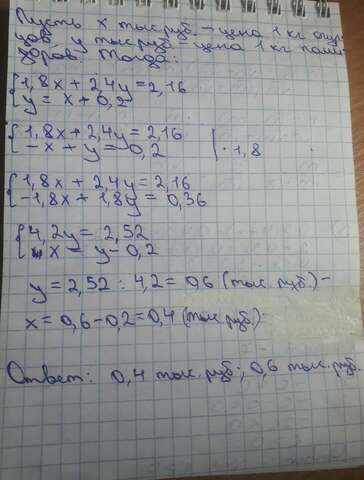 Пусть x тыс.руб. – цена 1 кг огур-
цов, y тыс.руб – цена 1 кг поми-
доров. Тогда:
{1,8x + 2,4y = 2,16
{y = x + 0,2
{1,8x + 2,4y = 2,16
{-x + y = 0,2 | · 1,8
{1,8x + 2,4y = 2,16
{-1,8x + 1,8y = 0,36
{4,2y = 2,52
{x = y - 0,2
y = 2,52 : 4,2 = 0,6 (тыс.руб.) –
x = 0,6 - 0,2 = 0,4 (тыс.руб.) –
Ответ: 0,4 тыс.руб.; 0,6 тыс.руб.